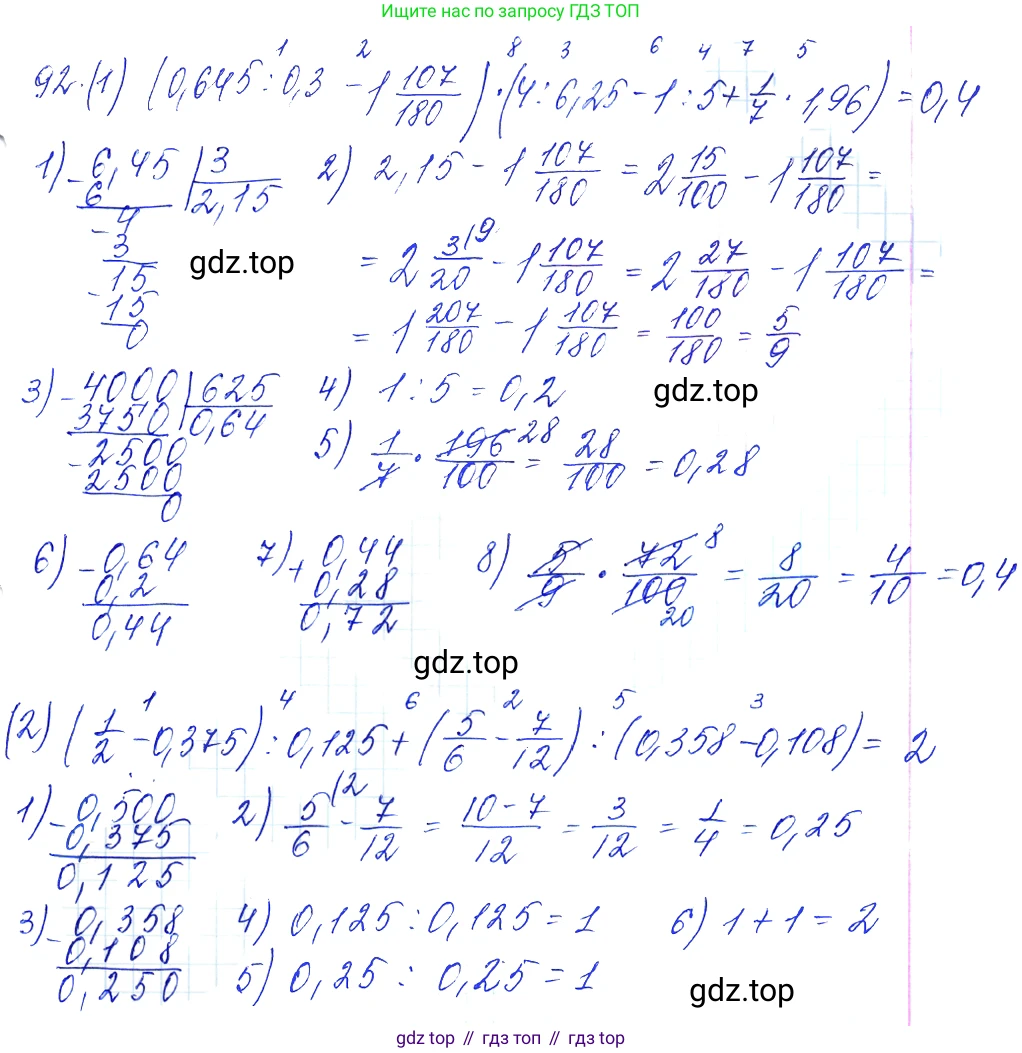 Ищите нас по запросу ГДЗ ТОП
92.(1) (0,645 : 0,3 - 1 107/180) · (4 : 6,25 - 1 : 5 + 1/7 · 1,96) = 0,4
1 2 8 3 6 4 7 5
1) 6,45 | 3
- 6 2,15
- 4
3
- 15
15
0
2) 2,15 - 1 107/180 = 2 15/100 - 1 107/180 =
= 2 3/20 |9 - 1 107/180 = 2 27/180 - 1 107/180 =
= 1 207/180 - 1 107/180 = 100/180 = 5/9
gdz.top
3) - 4000 | 625
3750 0,64
- 2500
2500
0
4) 1 : 5 = 0,2
gdz.top
5) 1/7 · 196/100 28 = 28/100 = 0,28
6) - 0,64
0,2
0,44
7) + 0,44
0,28
0,72
8) 5/9 · 72/100 8 20 = 8/20 = 4/10 = 0,4
gdz.top
(2) (1/2 - 0,375) : 0,125 + (5/6 - 7/12) : (0,358 - 0,108) = 2
1 4 6 2 5 3
1) - 0,500
0,375
0,125
2) 5/6 |2 - 7/12 = 10-7/12 = 3/12 = 1/4 = 0,25
3) - 0,358
0,108
0,250
4) 0,125 : 0,125 = 1
5) 0,25 : 0,25 = 1
6) 1 + 1 = 2
gdz.top
gdz.top // гдз топ // gdz.top